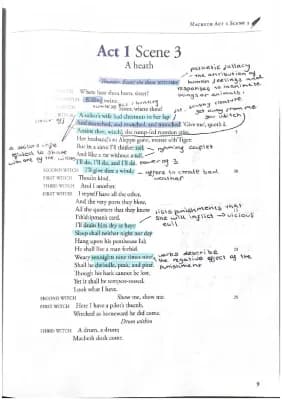 MACBETH ACT 1 SCENE 3
Act 1 Scene 3
A heath
pathetic fallacy
- the attribution of
human feelings and
responses to inanimate
things or animals.
Thunder. Enter the three WITCHES
Where hast thou been, sister?
Killing swine.
Sister, where thou?
A sailor's wife had chestnuts in her lap
And munched, and munched, and munched. 'Give me,' quoth I.
'Aroint thee, witch', the rump-fed runnion cries.
5
Her husband's to Aleppo gone, master o'th'Tiger:
But in a sieve I'll thither sail
rhyming couplet
And like a rat without a tail,
I'll do, I'll do, and I'll do.
power of 3
SECOND WITCH I'll give thee a wind.
refers to create bad
weather
FIRST WITCH Thou'rt kind.
THIRD WITCH And I another.
FIRST WITCH I myself have all the other,
And the very ports they blow,
All the quarters that they know
I'th'shipman's card.
I'll drain him dry as hay:
Sleep shall neither night nor day
Hang upon his penthouse lid;
He shall live a man forbid.
lists punishments that
she will inflict → vicious
evil
Weary sennights nine times nine,
Shall he dwindle, peak, and pine.
Though his bark cannot be lost,
Yet it shall be tempest-tossed.
Look what I have.
words describe
the negative effect of the
punishment
SECOND WITCH Show me, show me.
FIRST WITCH Here I have a pilot's thumb,
Wrecked as homeward he did come.
Drum within
THIRD WITCH A drum, a drum;
Macbeth doth come.
9